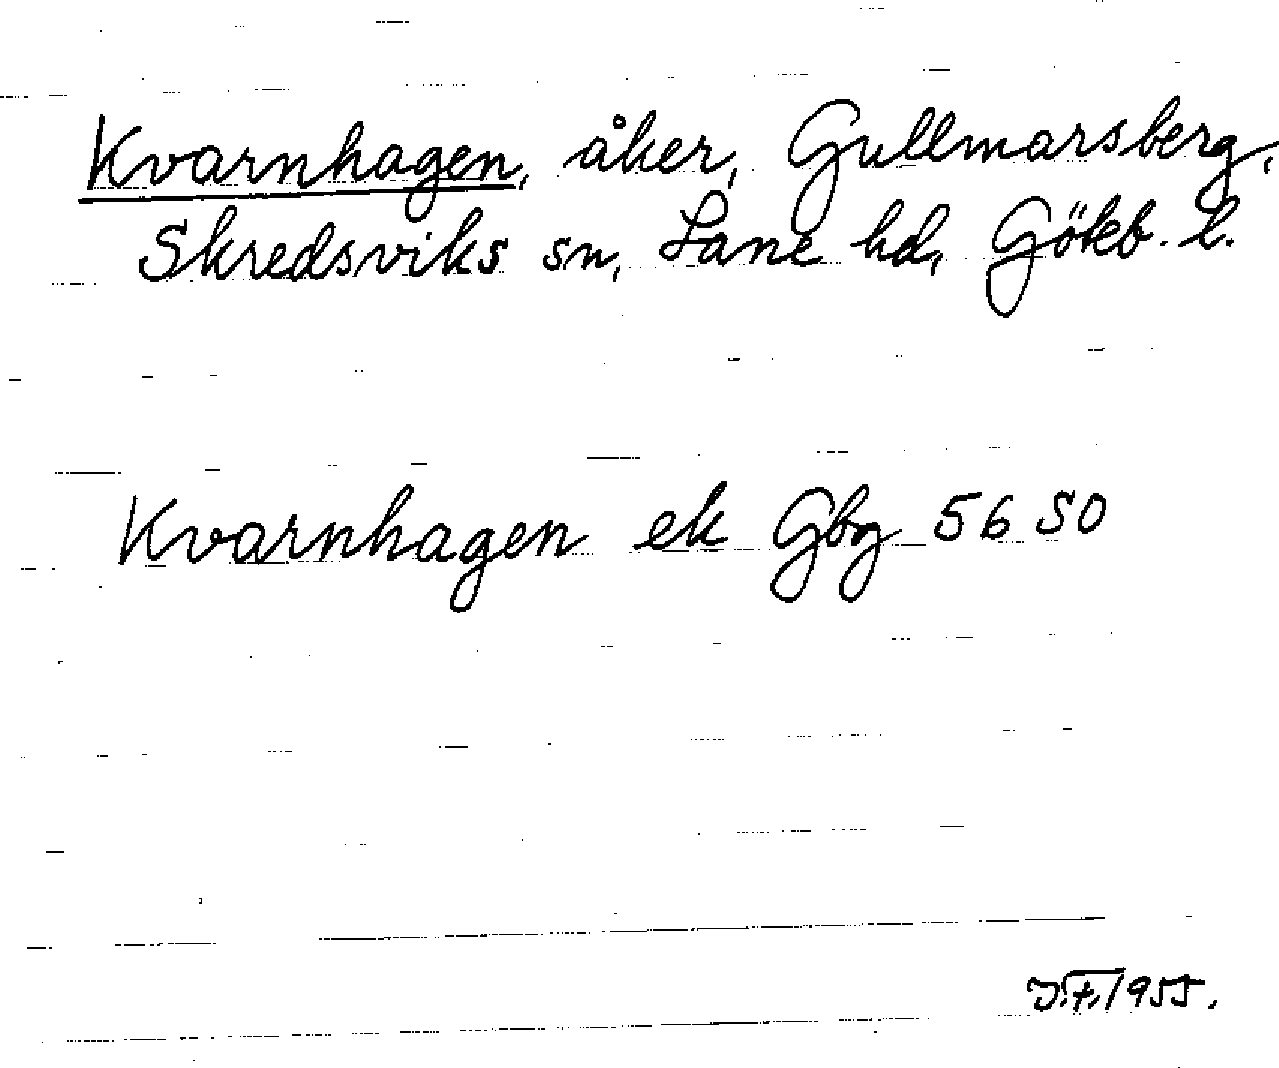 Kvarnhagen, åker, Gullmarsberg,
Skredsviks sn, Lane hd, Gökb. l.
Kvarnhagen ek Gbg 56 50
J.F. 1955.